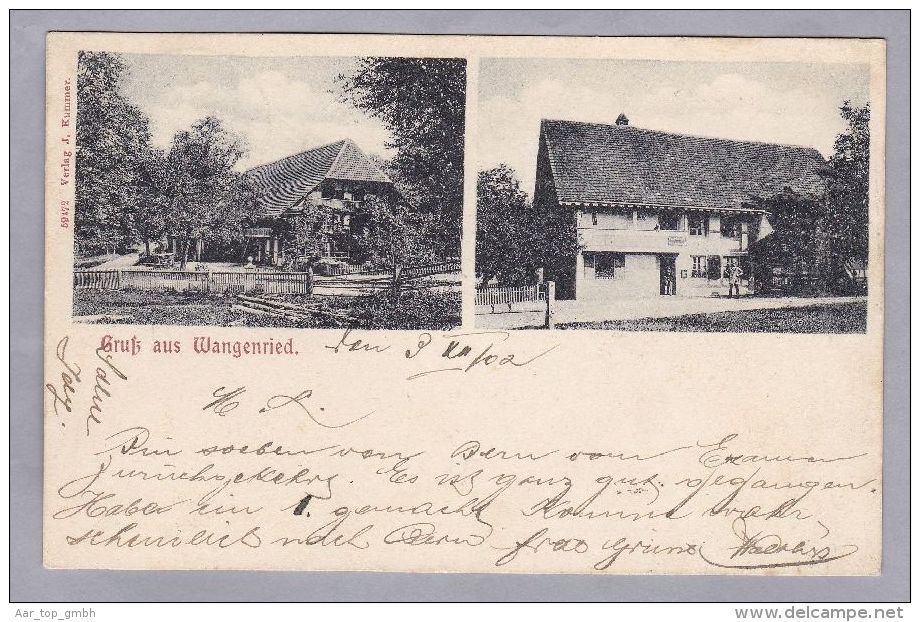 59472 Verlag J. Kummer.
Gruß aus Wangenried.
den 3 XII/02
M L.
Bin soeben von Bern vom Examen
zurückgekehrt. Es ist ganz gut gegangen.
Habe ein 1. gemacht Komme wahr
scheinlich nach Bern
Aar_top_gmbh
delcampe.net